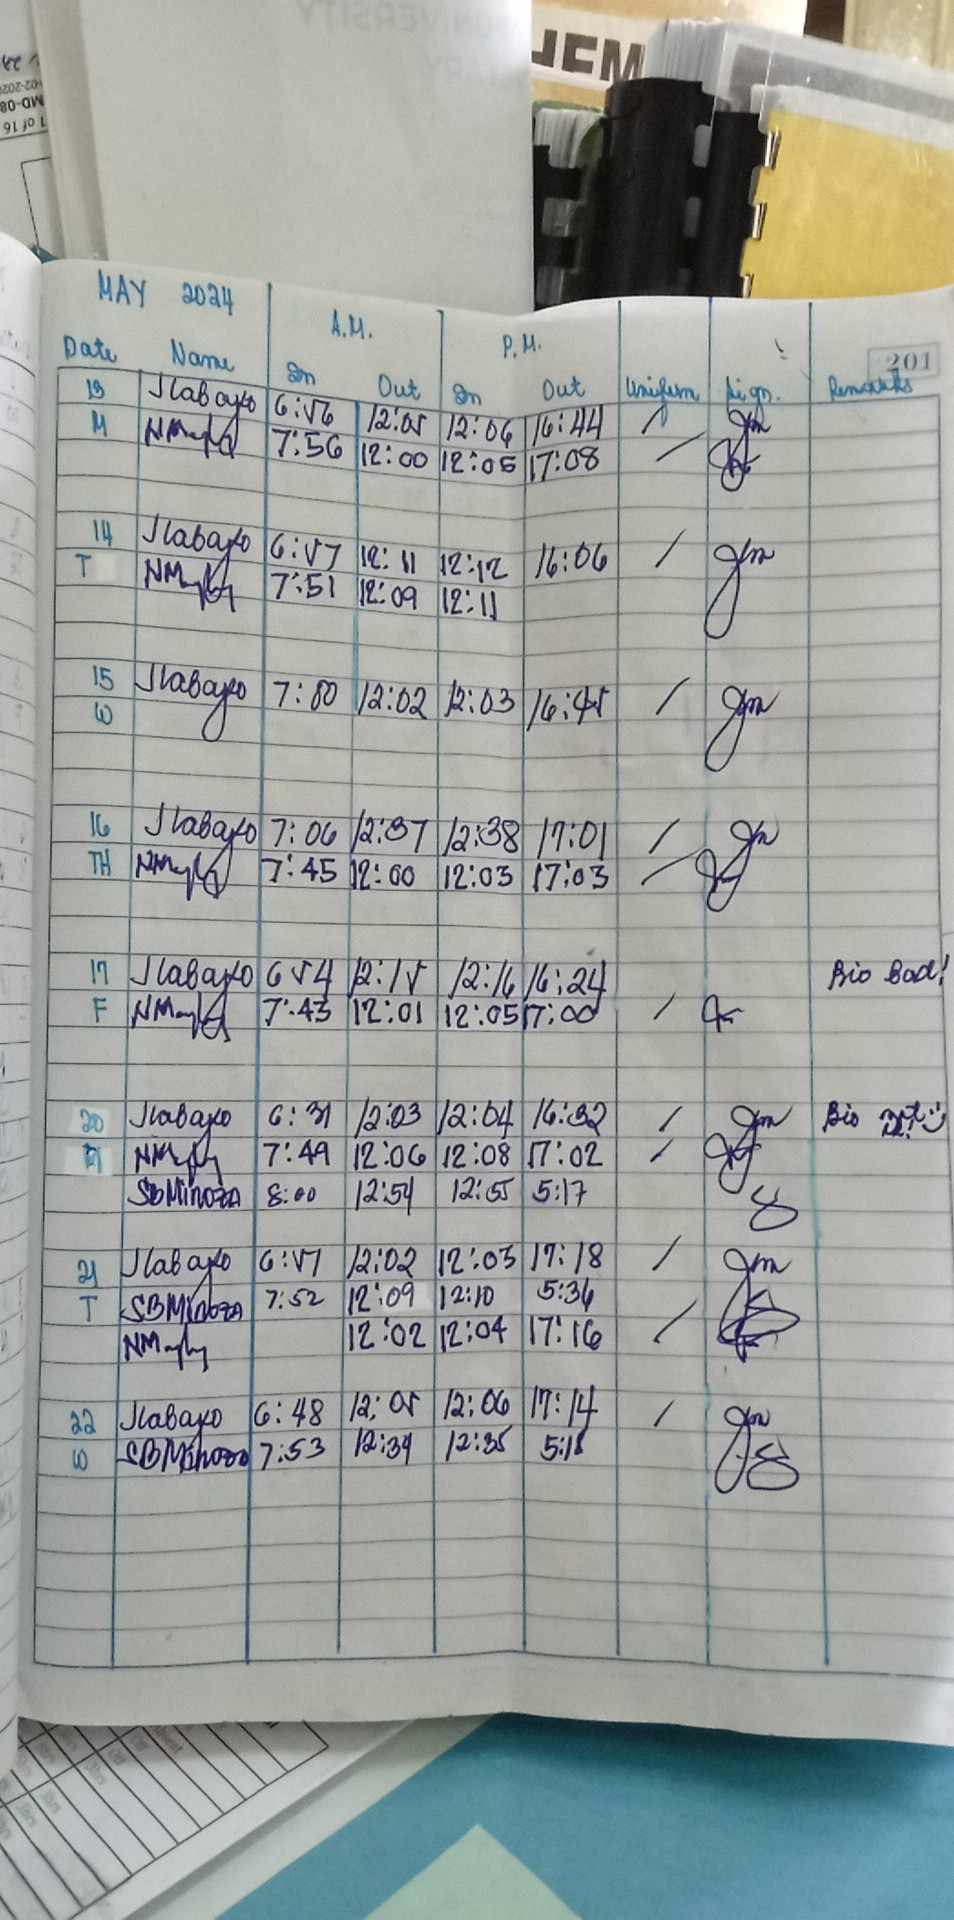 UNIVERSITY
MD-08
1 of 16
MAY 2024
A.M.
P.M.
201
Date Name In Out In Out Uniform Sign. Remarks
13 Jlabayo 6:56 12:05 12:06 16:44 /
M 7:56 12:00 12:05 17:08 /
14 Jlabayo 6:57 12:11 12:12 16:06 /
T 7:51 12:09 12:11
15 Jlabayo 7:00 12:02 12:03 16:45 /
W
16 Jlabayo 7:06 12:37 12:38 17:01 /
TH 7:45 12:00 12:03 17:03 /
17 Jlabayo 6 54 12:15 12:16 16:24 Bio Bad!
F 7:43 12:01 12:05 17:00 /
20 Jlabayo 6:31 12:03 12:04 16:32 / Bio
7:49 12:06 12:08 17:02 /
SBMinoza 8:00 12:54 12:55 5:17
21 Jlabayo 6:57 12:02 12:03 17:18 /
T SBMinoza 7:52 12:09 12:10 5:34
12:02 12:04 17:16 /
22 Jlabayo 6:48 12:05 12:06 17:14 /
W SBMinoza 7:53 12:34 12:35 5:18